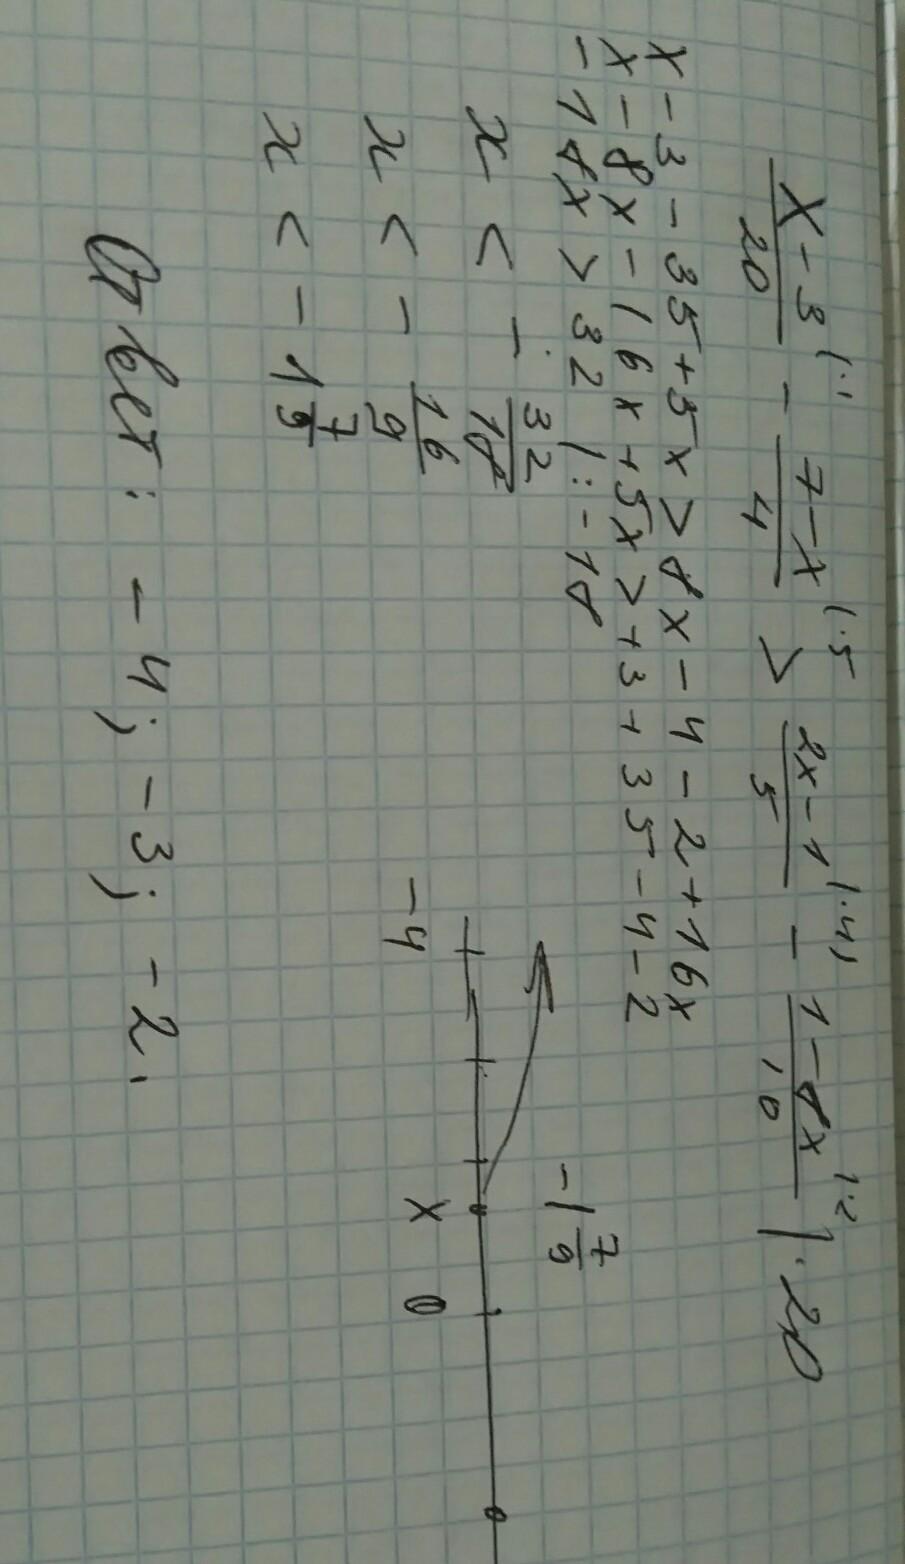 x-3/20 |·1 - 7-x/4 |·5 > 2x-1/5 |·4 - 1-8x/10 |·2 |·20
x-3-35+5x>8x-4-2+16x
x-8x-16x+5x>+3+35-4-2
-18x>32 |:-18
x < - 32/18
x < - 16/9
x < -1 7/9
-1 7/9
-4 x 0
Ответ: -4; -3; -2.